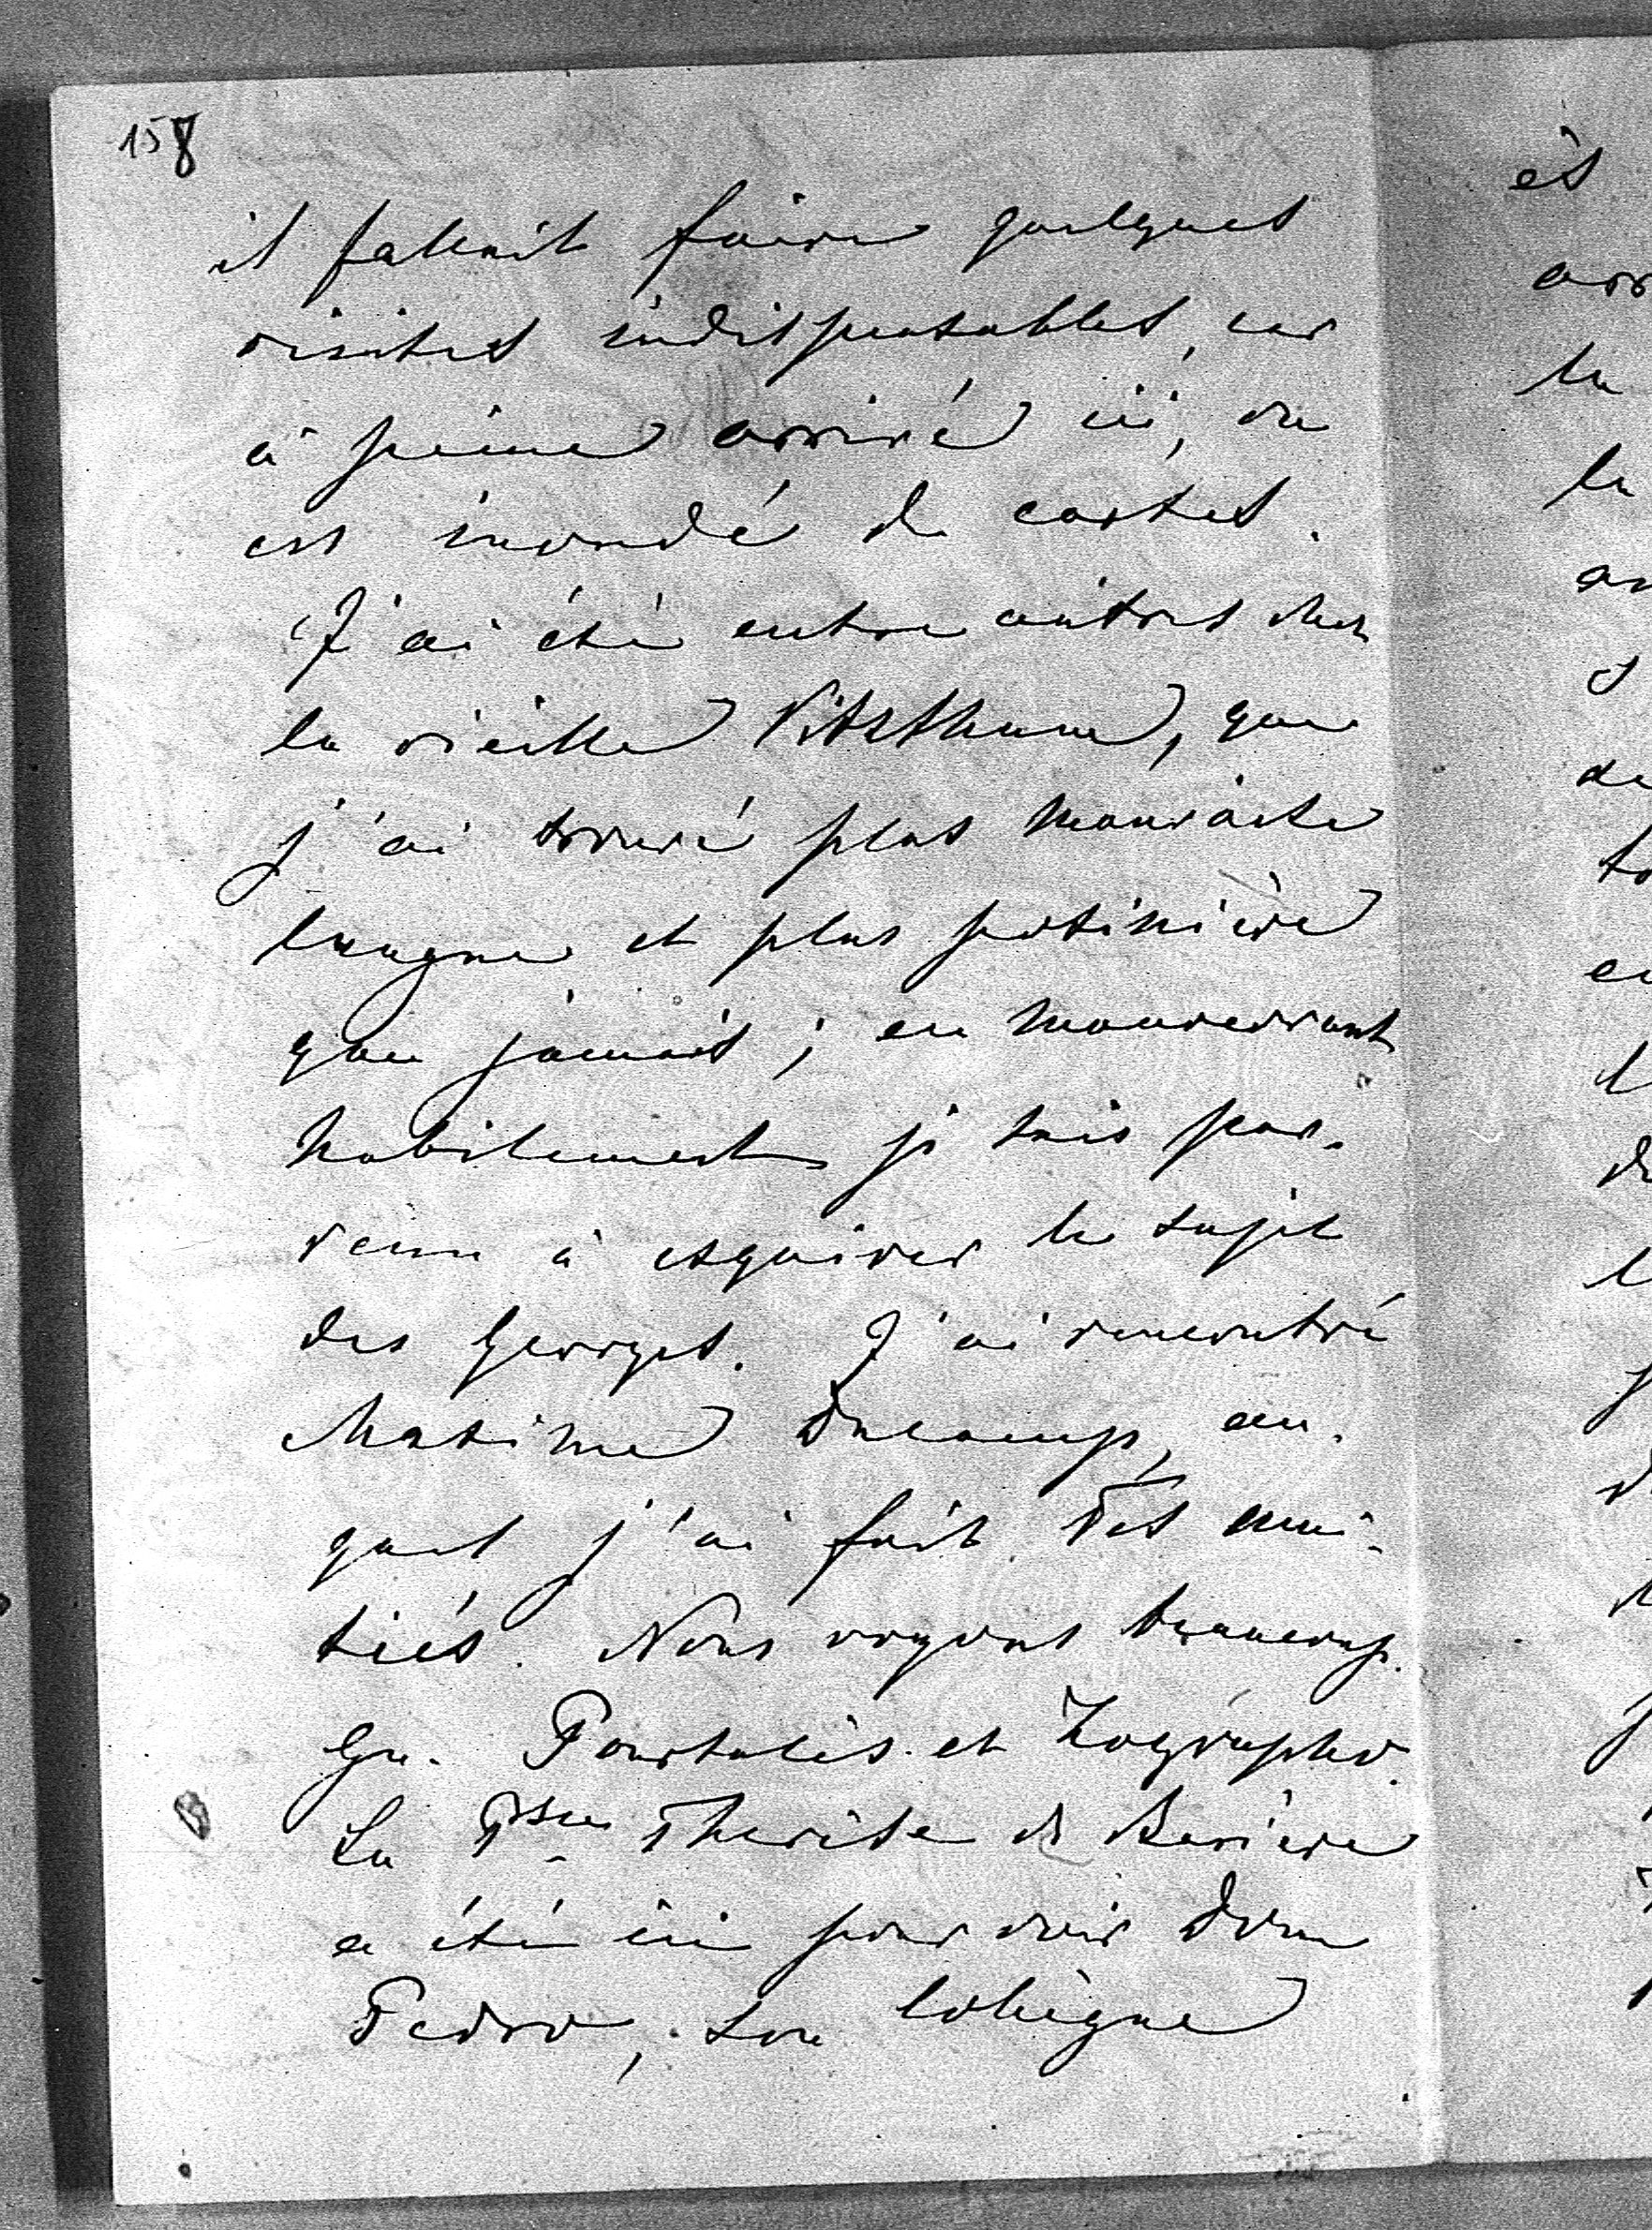 158
il fallait faire quelques
visites indispensables, car
à peine arrivé ici, on
est inondé de cartes.
J'ai été entre autres chez
la vieille Vitzthum, que
j'ai trouvé plus mauvaise
langue et plus potinière
que jamais; en manœuvrant
habilement je suis par-
venu à esquiver le sujet
des Georges. J'ai rencontré
Maxime Ducamp, au-
quel j'ai fait des ami-
tiés. Nous voyons beaucoup
Pourtalès et Zographo.
La Psse Thérèse de Bavière
a été ici pour voir Dom
Pedro, son collègue